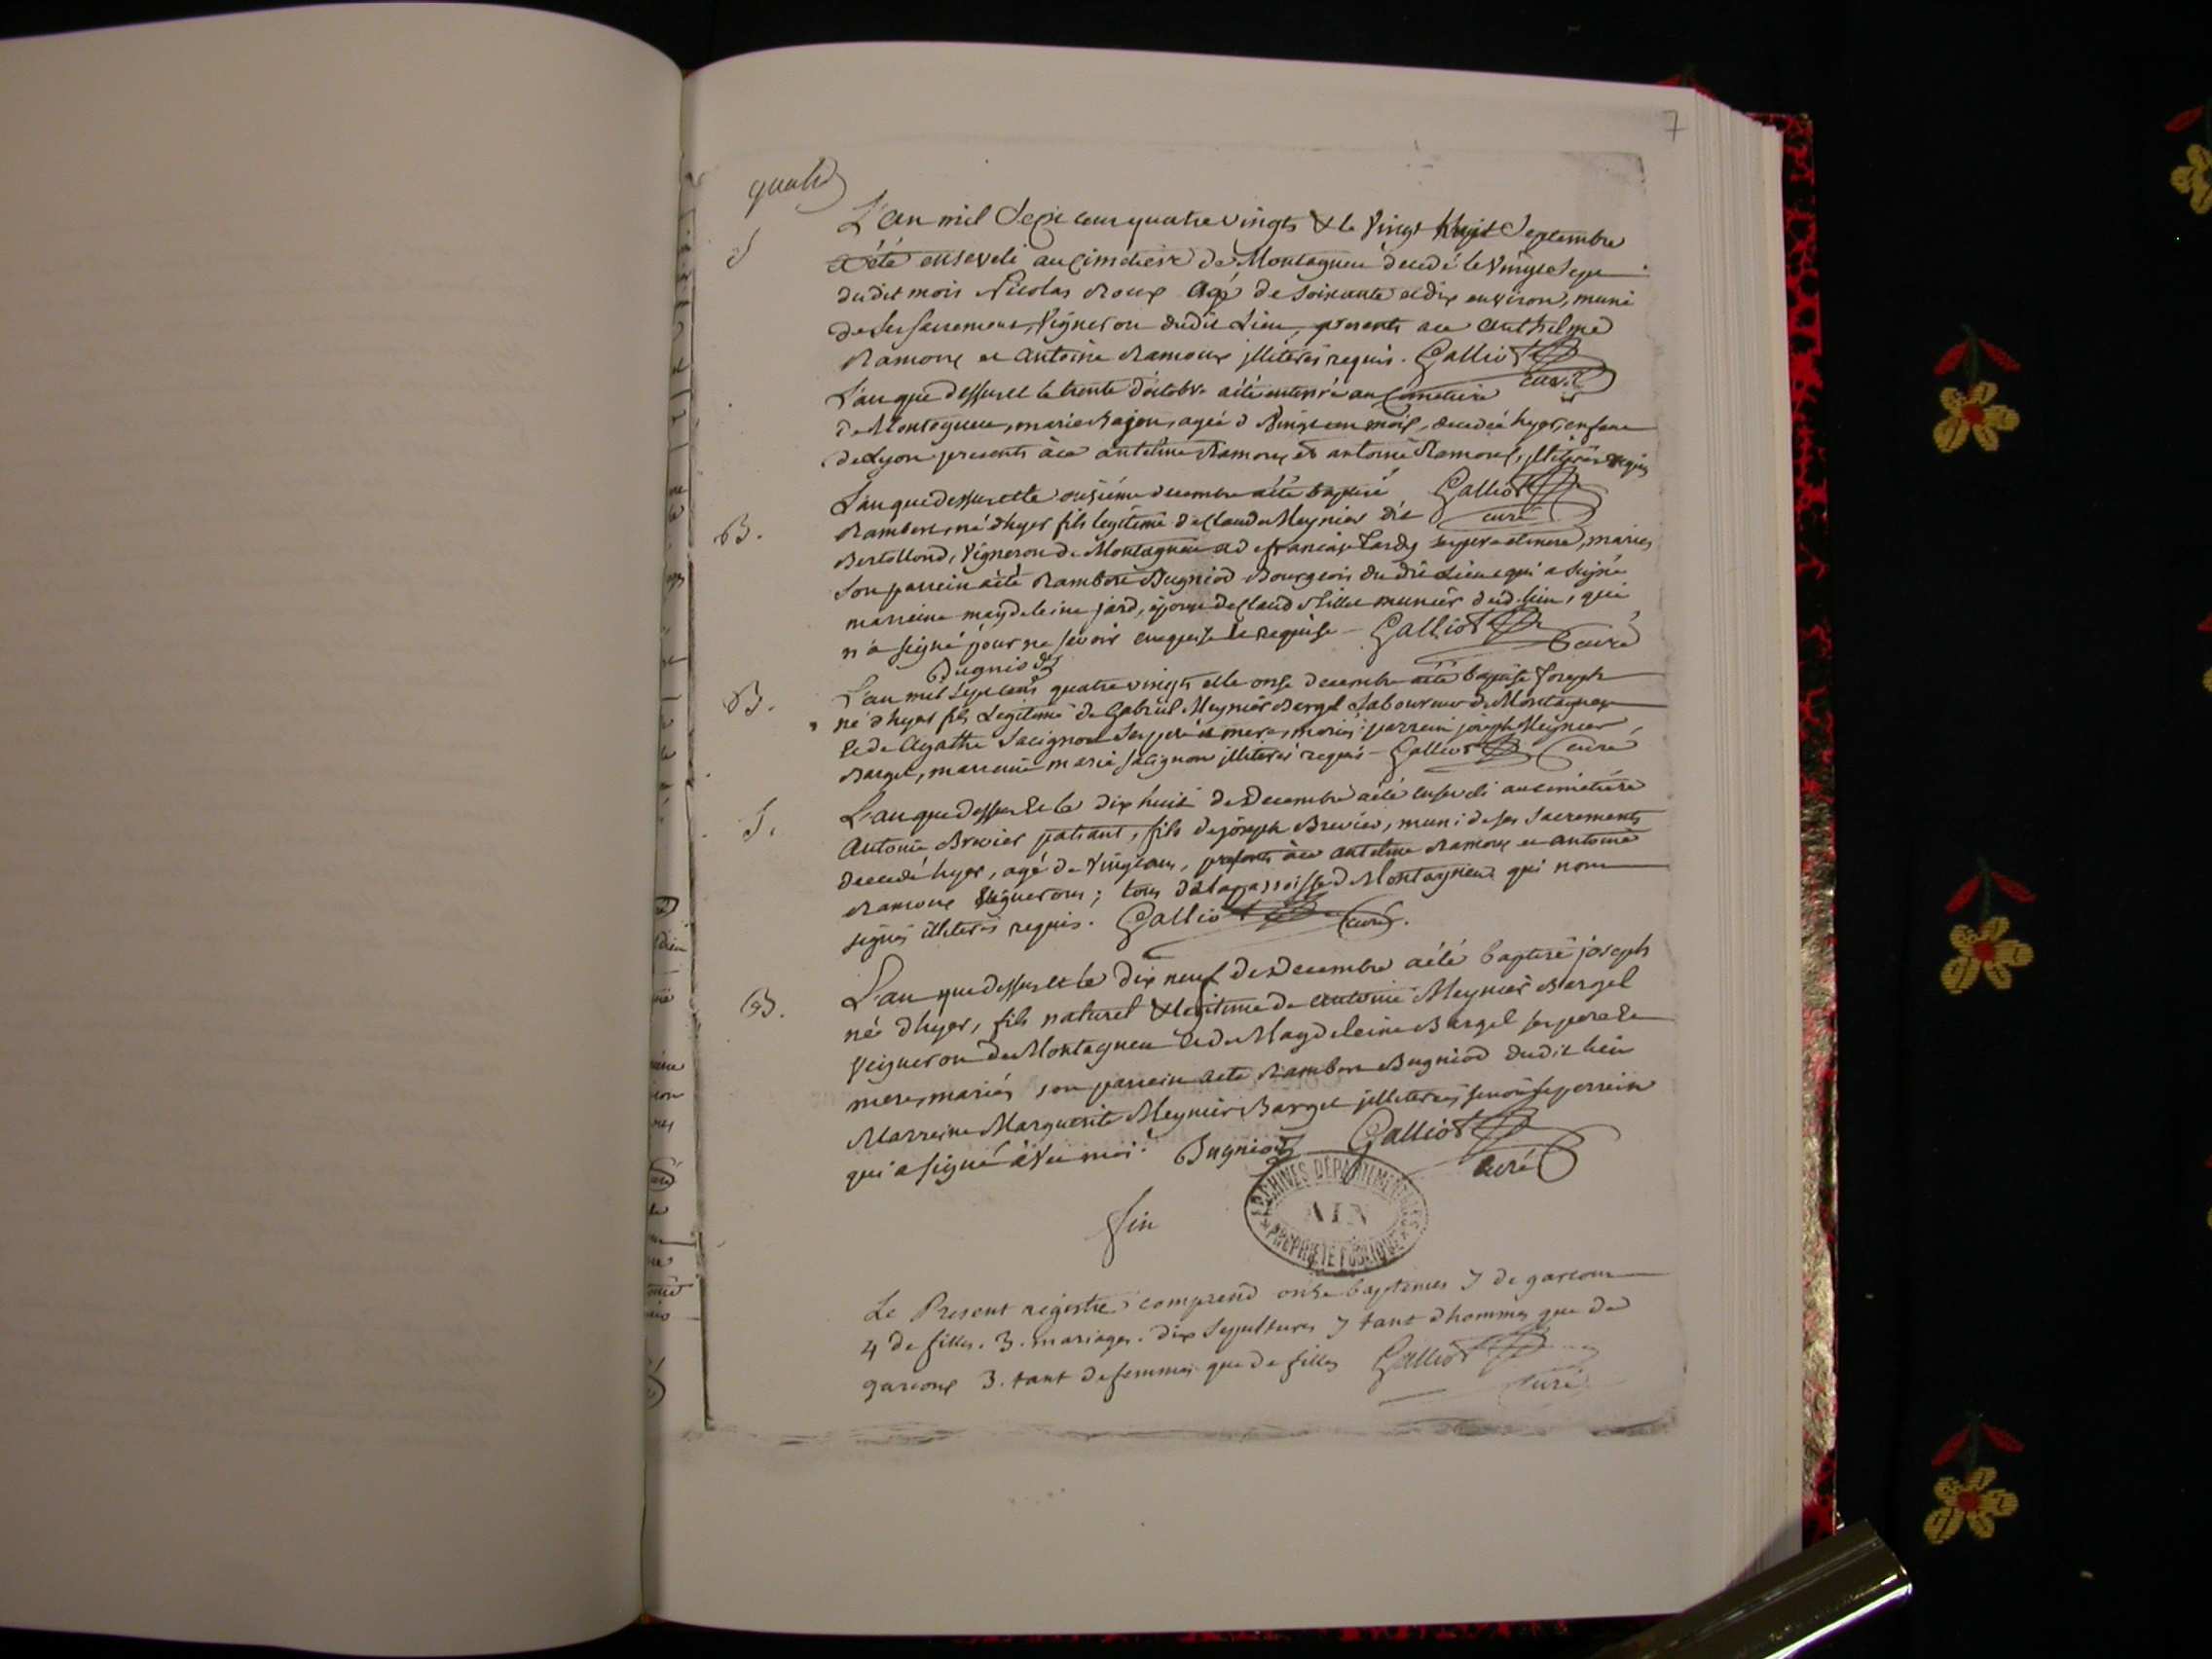 7
L'an mil Sept cens quatre vingts & le Vingt huit Septembre
a été enseveli au cimetiere de Montagneu decedé le Vingt Sept
dudit mois Nicolas Roux agé de soixante et dix environ, muni
de ses sacremens, Vigneron dudit Lieu, presents a ce anthelme
Ramoux et antoine Ramoux illiterés requis. Galliot
curé
L'an que dessus et le trente d'octobre a été enterré au Cimetiere
de Montagneu, marie Bajon, agée d Vingt un mois, decedée hyer, enfant
de Lyon presents à ce antelme Ramoux et antoine Ramoux, illiterés requis
L'an que dessus et le onsiéme decembre a été baptisé Galliot
B. Rambert, né d'hyer fils legitime de Claude Meynier dit curé
Bertollond, Vigneron de Montagneu et de françoise Tardy ses pere et mere, mariés
son parrein a été Rambert Bugniod Bourgeois dudit Lieu qui a signé
marreine magdeleine jard, épouse de Claude Millet munier dud. lieu, qui
n'a signé pour ne savoir enquise et requise - Galliot curé
Bugniod
B. L'an mil Sept cens quatre vingts et le onse decembre a été baptisé Joseph
né d'hyer fils Legitime de Gabriel Meynier Bargel Laboureur de Montagneu
et de Agathe Salignon ses pere et mere, mariés parrein joseph Meynier
Bargel, marreine marie Salignon illiterés requis - Galliot curé
S. L'an que dessus et le dix huit de Decembre a été enseveli au cimetiére
Antoine Brevier, fils de joseph Brevier, muni de ses Sacrements
decedé hyer, agé de Vingt ans, presents à ce antelme Ramoux et antoine
Ramoux Vignerons; tous de la parroisse de Montagneu qui n'ont
signés illiterés requis. Galliot curé.
B. L'an que dessus et le dix neuf de Decembre a été baptisé joseph
né d'hyer, fils naturel & legitime de antoine Meynier Bargel
Veigneron de Montagneu et de Magdeleine Bargel ses pere et
mere, mariés son parrein a été Rambert Bugniod dudit lieu
Marreine Marguerite Meynier Bargel illiterés, sinon le perrein
qui a signé avec moi. Bugniod Galliot
curé
fin
ARCHINES DÉPARTEMENTALES
AIN
PROPRIÉTÉ PUBLIQUE
Le Present régistre comprend onse baptemes 7 de garcons
4 de filles. 3. mariages. dix Sepultures 7 tant d'hommes que de
garcons 3. tant de femmes que de filles Galliot
curé